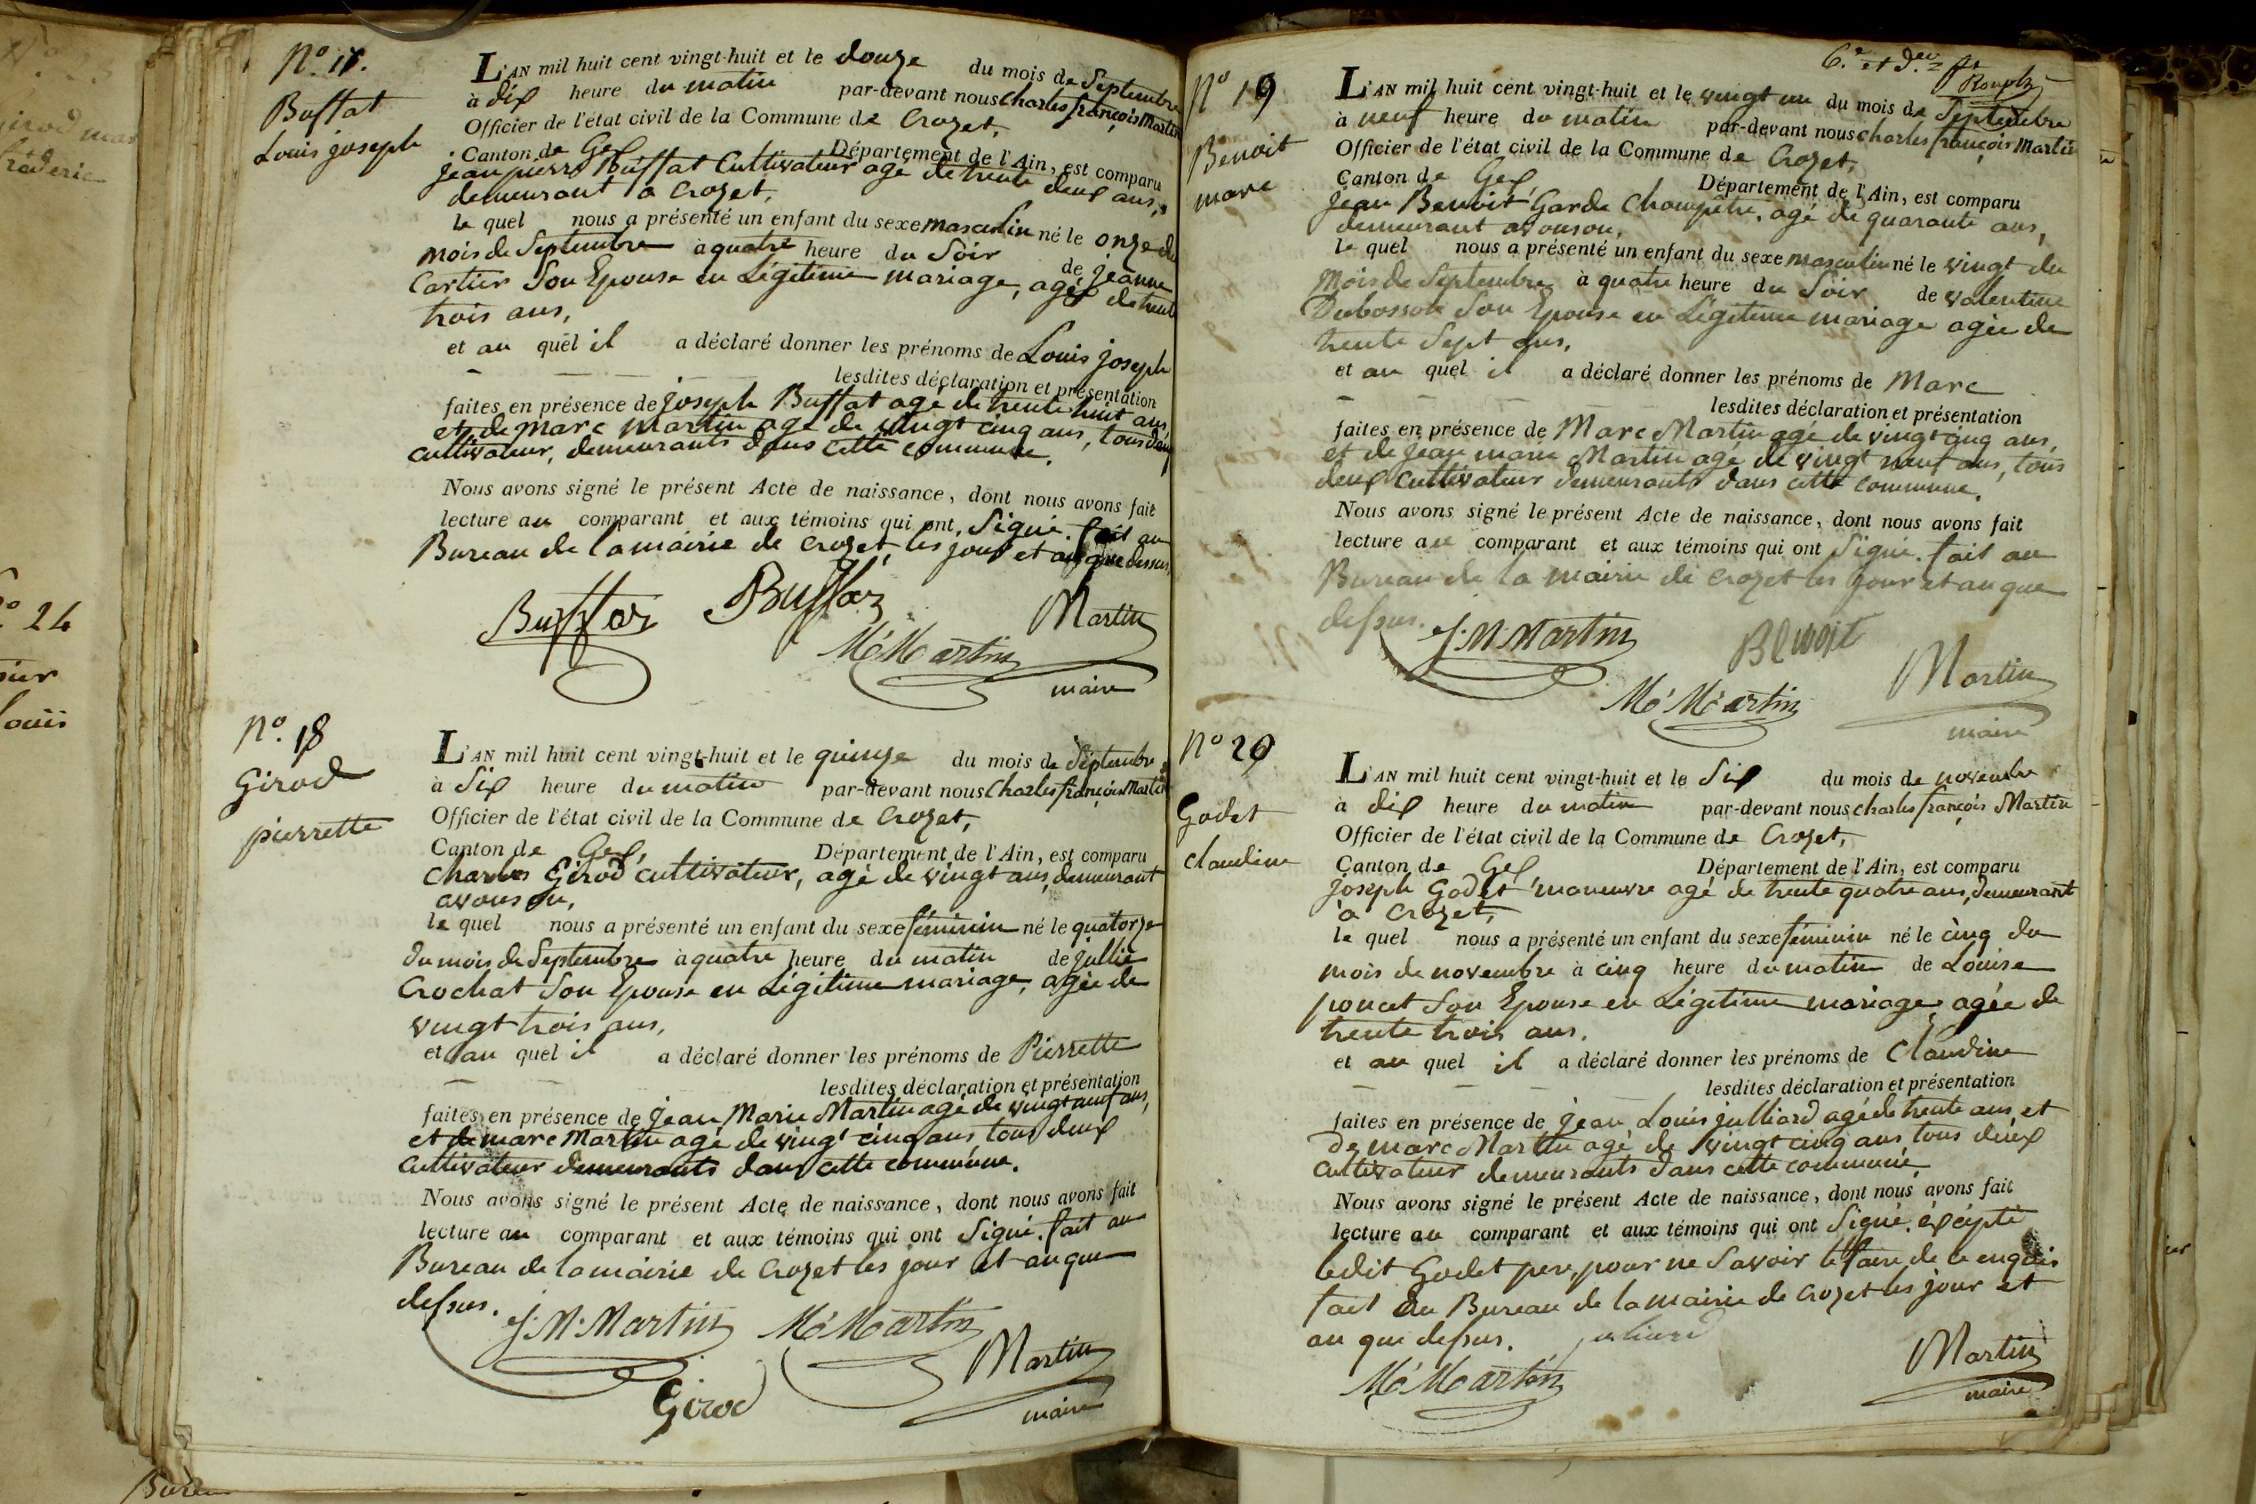 N.o 17.
Buffat
Louis joseph
L'AN mil huit cent vingt-huit et le douze du mois de Septembre
à dix heure du matin par-devant nous charles françois Martin
Officier de l'état civil de la Commune de Crozet,
Canton de Gex, Département de l'Ain, est comparu
jean pierre Buffat Cultivateur agé de trente deux ans,
demeurant a Crozet,
le quel nous a présenté un enfant du sexe masculin né le onze du
mois de Septembre à quatre heure du Soir de jeanne
Cartier Son Epouse en Légitime mariage, agée de trente
trois ans,
et au quel il a déclaré donner les prénoms de Louis joseph
lesdites déclaration et présentation
faites en présence de joseph Buffat agé de trente huit ans,
et de marc Martin agé de vingt cinq ans, tous deux
cultivateur, demeurants dans cette commune.
Nous avons signé le présent Acte de naissance, dont nous avons fait
lecture au comparant et aux témoins qui ont Signé. fait au
Bureau de la mairie de Crozet, les jour et an que dessus,
Buffat Buffat Martin
Mc Martin
maire
N.o 18
Girod
pierrette
L'AN mil huit cent vingt-huit et le quinze du mois de Septembre
à Six heure du matin par-devant nous Charles françois Martin
Officier de l'état civil de la Commune de Crozet,
Canton de Gex, Département de l'Ain, est comparu
Charles Girod cultivateur, agé de vingt ans, demeurant
avouson,
le quel nous a présenté un enfant du sexe féminin né le quatorze
du mois de Septembre à quatre heure du matin de jullie
Crochat Son Epouse en Légitime mariage, agée de
vingt trois ans,
et au quel il a déclaré donner les prénoms de Pierrette
lesdites déclaration et présentation
faites en présence de jean Marie Martin agé de vingt neuf ans,
et de marc Martin agé de vingt cinq ans tous deux
cultivateur demeurants dans cette commune.
Nous avons signé le présent Acte de naissance, dont nous avons fait
lecture au comparant et aux témoins qui ont Signé. fait au
Bureau de la mairie de Crozet les jour et an que
dessus.
J. M. Martin Mc Martin
Martin
Girod
maire
6.e et d.er
N.o 19
Benoit
marc
L'AN mil huit cent vingt-huit et le vingt un du mois de Septembre
à neuf heure du matin par-devant nous charles françois Martin
Officier de l'état civil de la Commune de Crozet,
Canton de Gex, Département de l'Ain, est comparu
jean Benoit Garde Champêtre, agé de quarante ans,
demeurant avouson,
le quel nous a présenté un enfant du sexe masculin né le vingt du
mois de Septembre à quatre heure du Soir de valentine
Son Epouse en Légitime mariage agée de
trente Sept ans,
et au quel il a déclaré donner les prénoms de Marc
lesdites déclaration et présentation
faites en présence de Marc Martin agé de vingt cinq ans,
et de jean marie Martin agé de vingt neuf ans, tous
deux cultivateur demeurants dans cette commune.
Nous avons signé le présent Acte de naissance, dont nous avons fait
lecture au comparant et aux témoins qui ont Signé. fait au
Bureau de la mairie de Crozet les jour et an que
dessus.
J. M. Martin Benoit
Mc Martin Martin
maire
N.o 20
Godet
claudine
L'AN mil huit cent vingt-huit et le Six du mois de novembre
à dix heure du matin par-devant nous charles françois Martin
Officier de l'état civil de la Commune de Crozet,
Canton de Gex Département de l'Ain, est comparu
joseph Godet manœuvre agé de trente quatre ans, demeurant
à Crozet,
le quel nous a présenté un enfant du sexe féminin né le cinq du
mois de novembre à cinq heure du matin de Louise
poncet Son Epouse en Légitime mariage, agée de
trente trois ans.
et au quel il a déclaré donner les prénoms de Claudine
lesdites déclaration et présentation
faites en présence de jean Louis julliard agé de trente ans, et
de marc Martin agé de vingt cinq ans, tous deux
cultivateur demeurants dans cette commune.
Nous avons signé le présent Acte de naissance, dont nous avons fait
lecture au comparant et aux témoins qui ont Signé. éxcépté
ledit Godet pere, pour ne Savoir le faire de ce enquis
fait au Bureau de la mairie de Crozet les jour et
an que dessus. julliard
Mc Martin Martin
maire